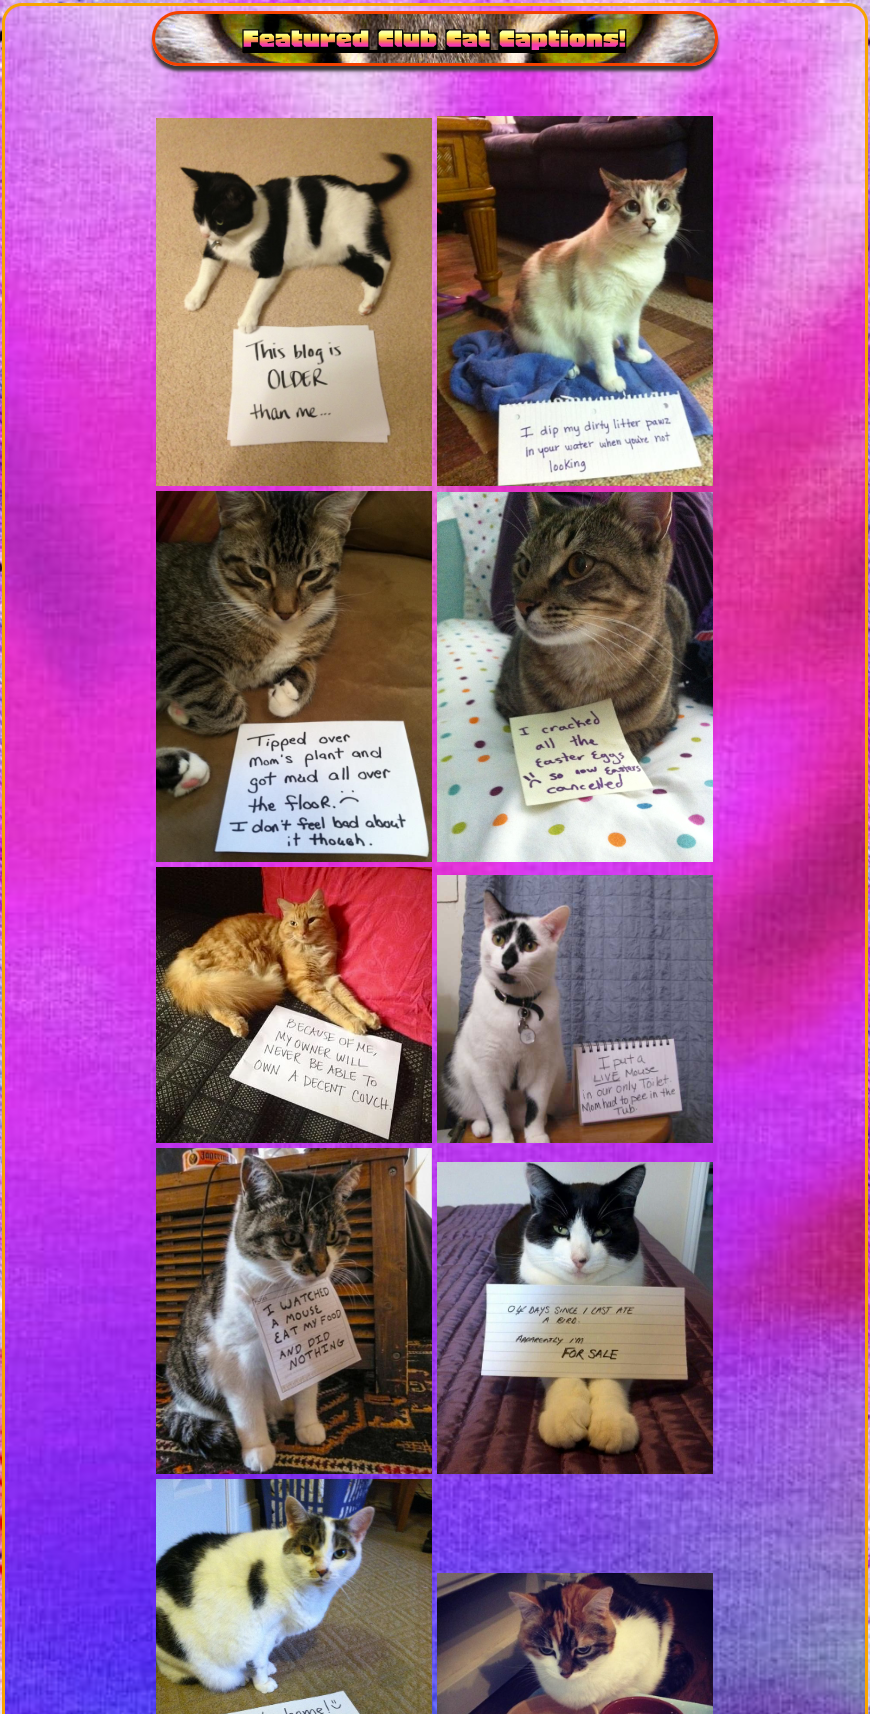 Featured Club Cat Captions!
This blog is
OLDER
than me...
I dip my dirty litter pawz
in your water when you're not
looking
Tipped over
Mom's plant and
got mud all over
the flooR. :(
I don't feel bad about
it though.
I cracked
all the
Easter Eggs
:( so now Easters
cancelled
BECAUSE OF ME,
MY OWNER WILL
NEVER BE ABLE TO
OWN A DECENT COUCH.
I put a
LIVE Mouse
in our only Toilet
Mom had to pee in the
Tub.
I WATCHED
A MOUSE
EAT MY FOOD
AND DID
NOTHING
DAYS SINCE I LAST ATE
A BIRD.
APPARENTLY I'M
FOR SALE
home! :)